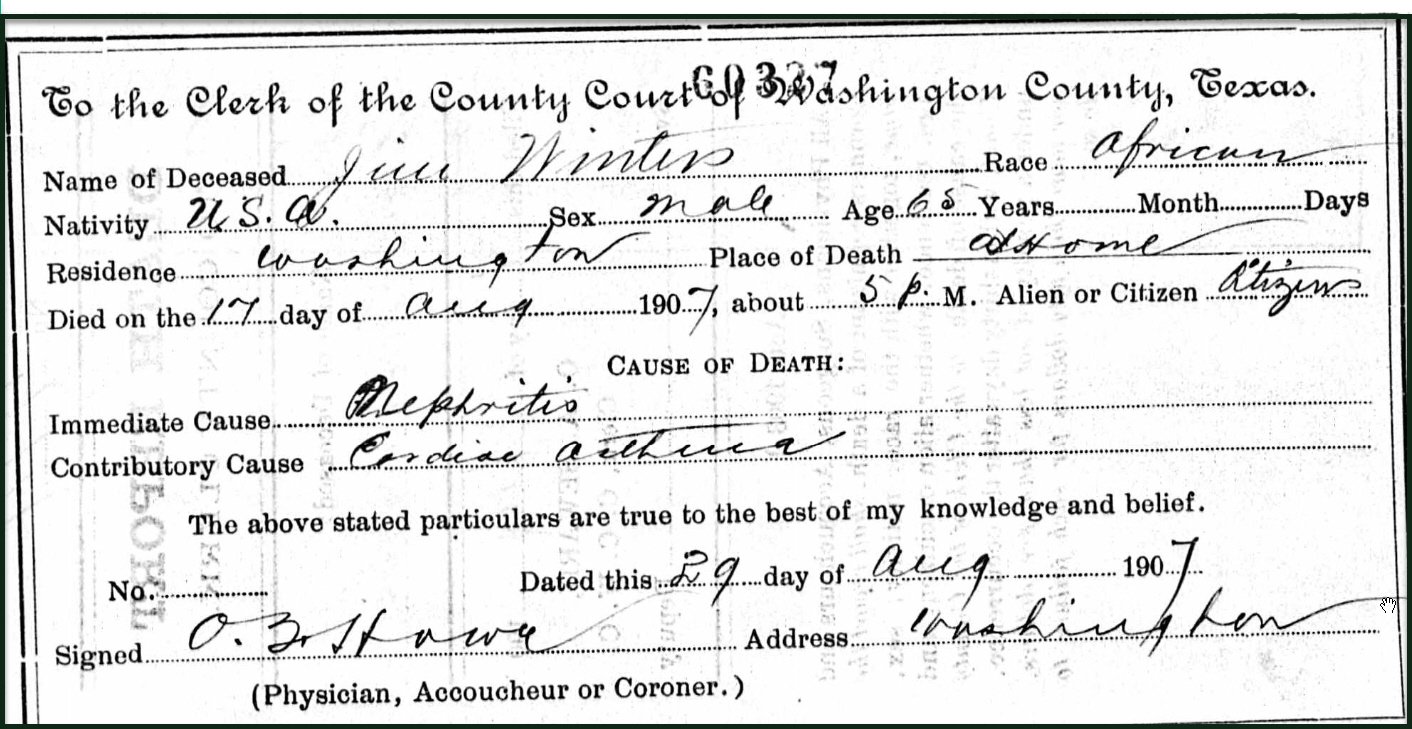 60327
To the Clerk of the County Court of Washington County, Texas.
Name of Deceased Jim Winters Race African
Nativity U.S.A. Sex Male Age 65 Years Month Days
Residence Washington Place of Death at Home
Died on the 17 day of Aug 1907, about 5 p. M. Alien or Citizen Citizens
CAUSE OF DEATH:
Immediate Cause Nephritis
Contributory Cause Cardiac Asthma
The above stated particulars are true to the best of my knowledge and belief.
No. Dated this 29 day of Aug 1907
Signed O. B. Howe Address Washington
(Physician, Accoucheur or Coroner.)